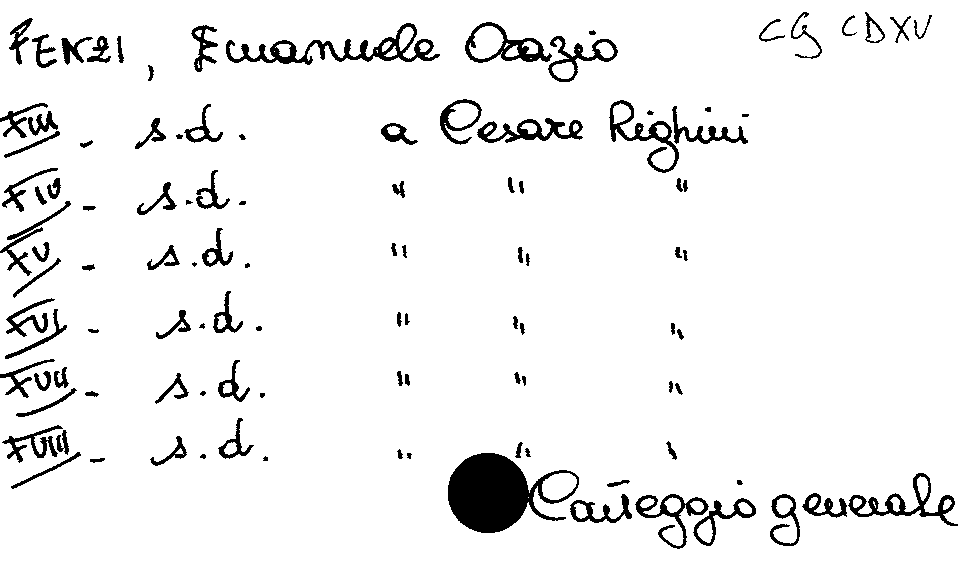 FENZI, Emanuele Orazio CG CDXV
XIII - s.d. a Cesare Righini
XIV - s.d. " " "
XV - s.d. " " "
XVI - s.d. " " "
XVII - s.d. " " "
XVIII - s.d. " " "
Carteggio generale